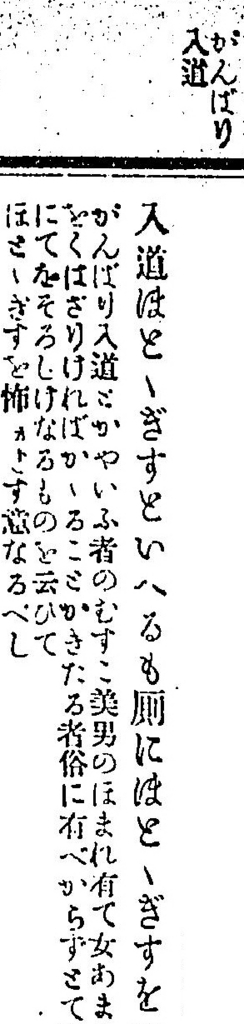 がんばり
入道
入道ほとゝぎすといへるも厠にほとゝぎすを
がんばり入道とかやいふ者のむすこ美男のほまれ有て女あま
をくはざりければかゝることかきたる者俗に有べからずとて
にてをそろしけなるものを云ひて
ほとゝぎすを怖
す意なるべし